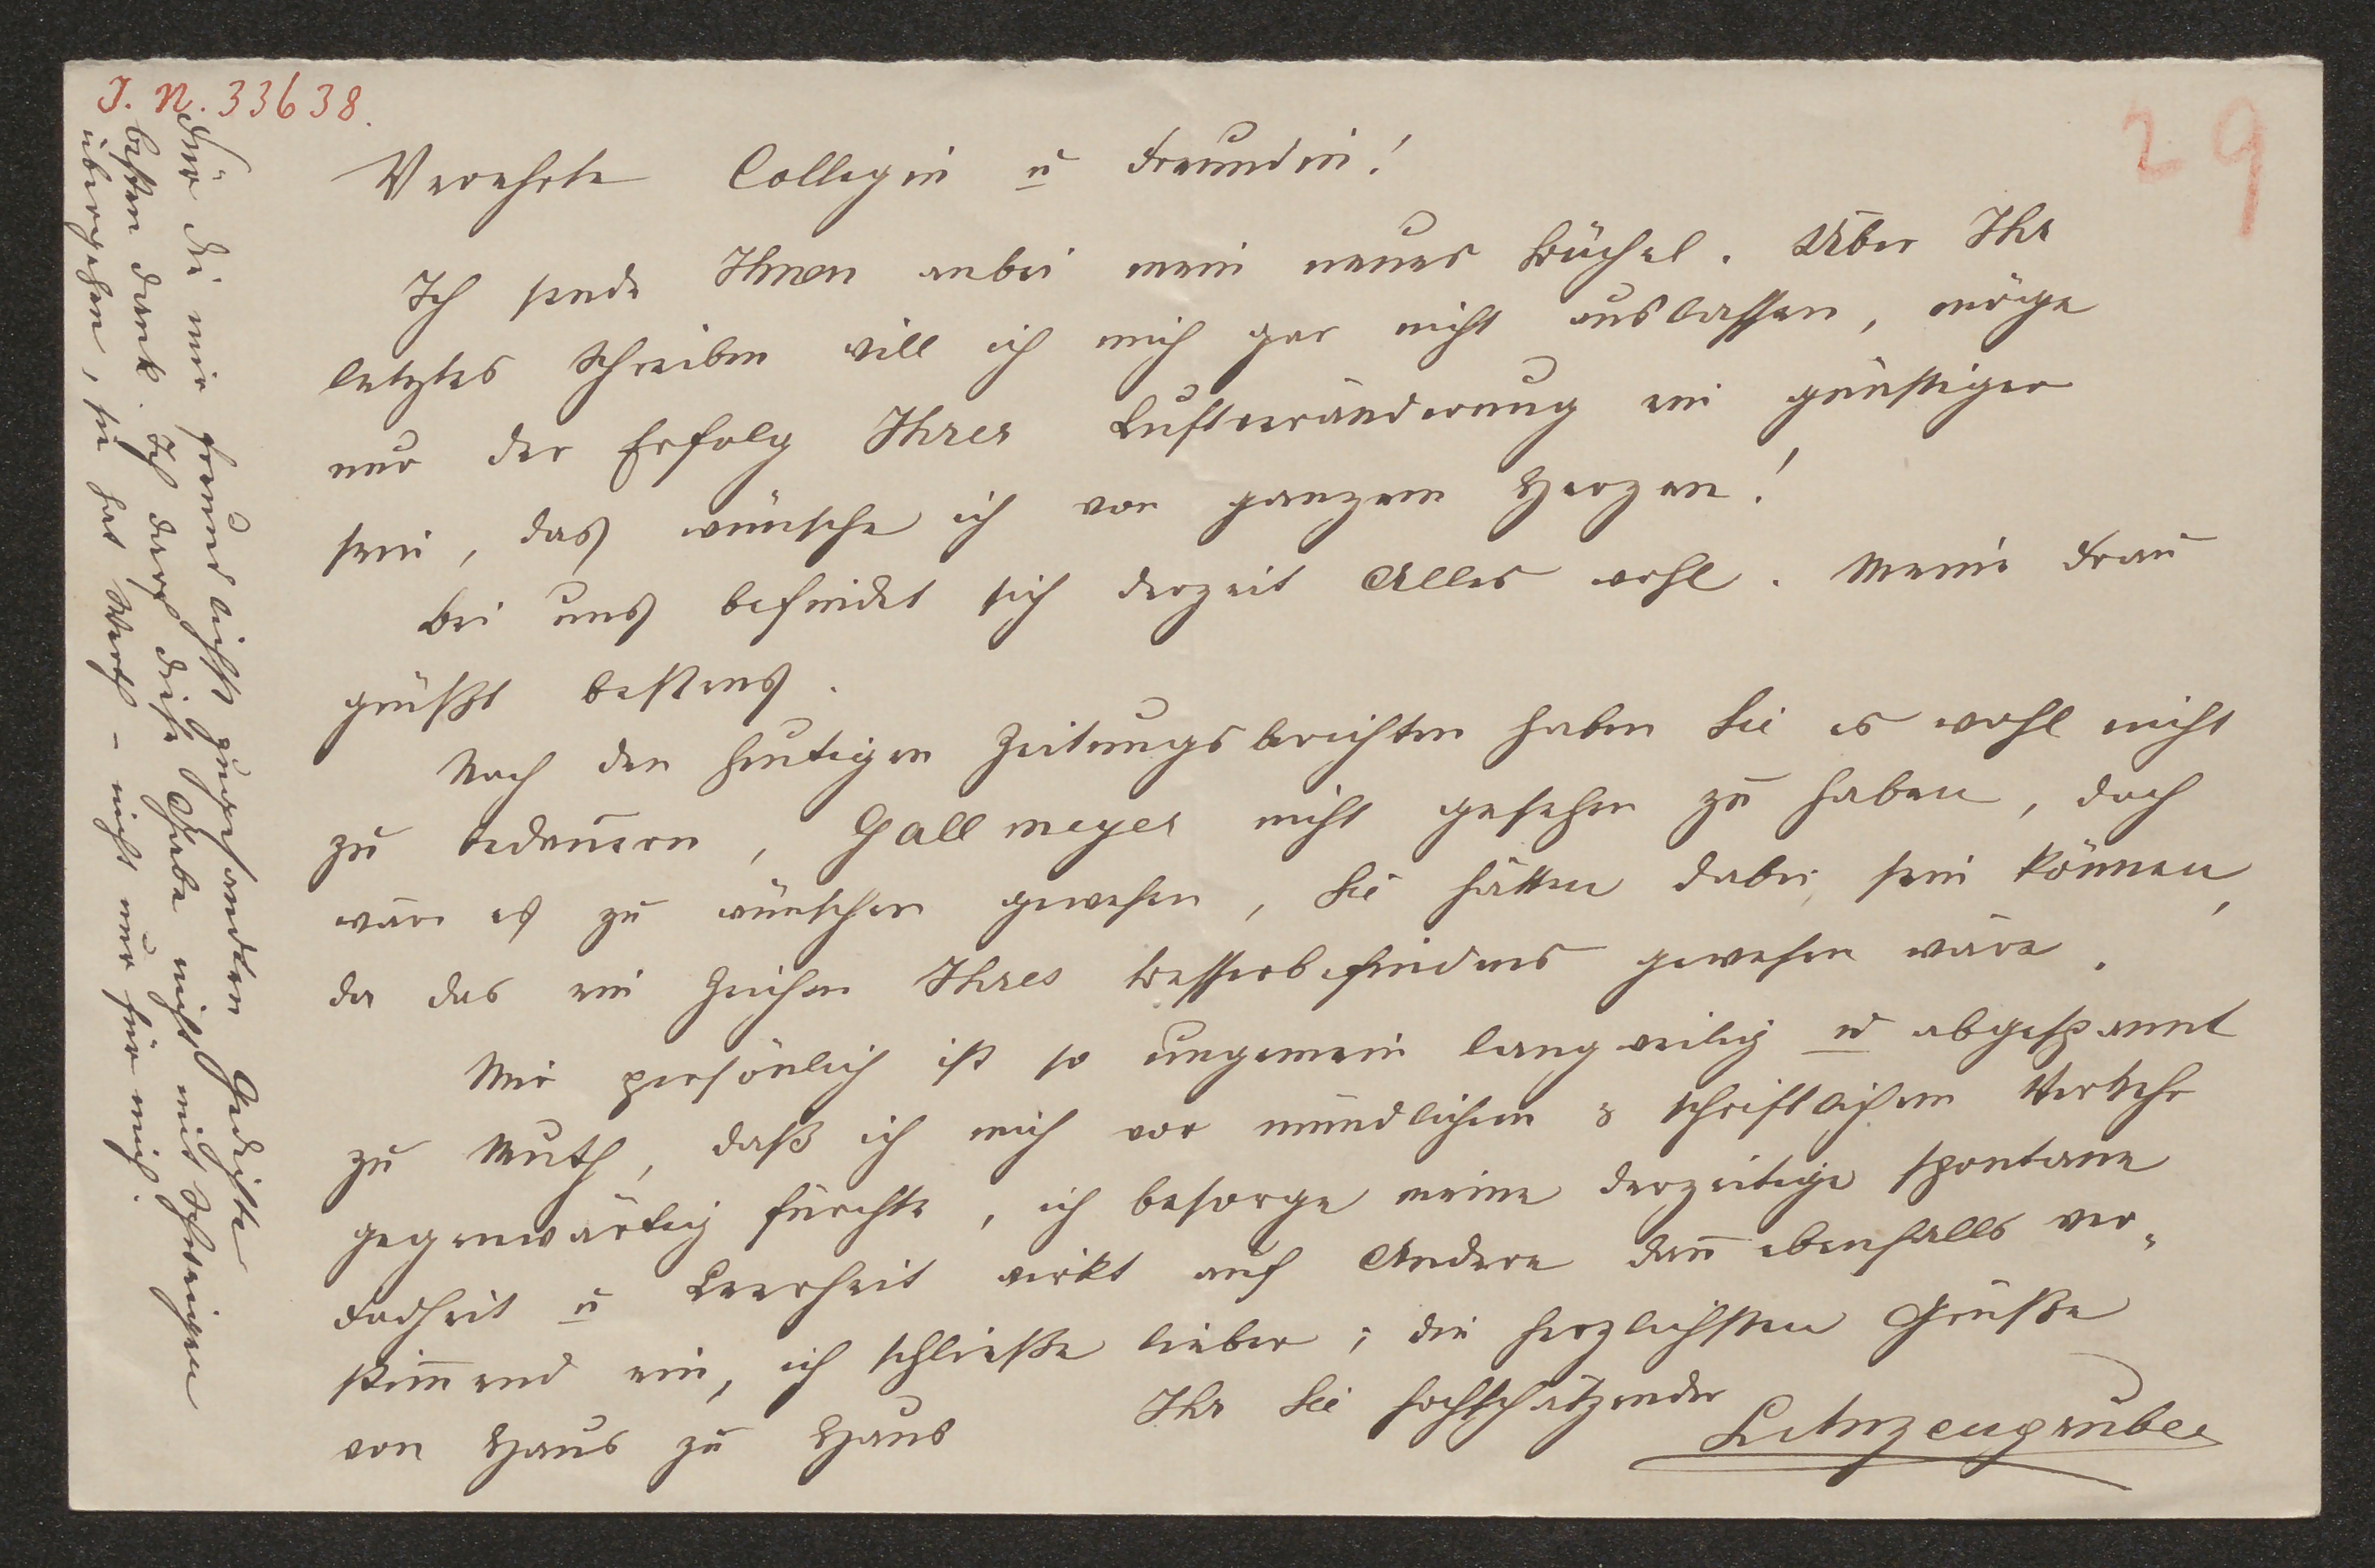 I. N. 33638.
29
Verehrte Collegin u Freundin!
Ich sende Ihnen anbei mein neues Büchel. Über Ihr
letztes Schreiben will ich mich gar nicht auslassen, möge
nur der Erfolg Ihrer Luftveränderung ein günstiger
sein, das wünsche ich von ganzem Herzen!
Bei uns befindet sich derzeit Alles wohl. Meine Frau
grüßt bestens.
Nach den heutigen Zeitungsberichten haben Sie es wohl nicht
zu bedauern, Gallmeyer nicht gesehen zu haben, doch
wäre es zu wünschen gewesen, Sie hätten dabei sein können,
da das ein Zeichen Ihres Besserbefindens gewesen wäre.
Mir persönlich ist so ungemein langweilig u abgespannt
zu Muth, daß ich mich vor mündlichem & schriftlichem Verkehr
gegenwärtig fürchte, ich besorge meine derzeitige spontane
Fadheit u Leerheit wirkt auf Andere dann ebenfalls ver-
stimmend ein, ich schließe lieber; die herzlichsten Grüße
von Haus zu Haus Ihr Sie hochschätzender
LAnzengruber
Für die mir freundlichst zugesandten Gedichte
besten Dank. Ich darf diese Gabe nicht mit Schweigen
übergehen, sie hat Werth - nicht nur für mich.